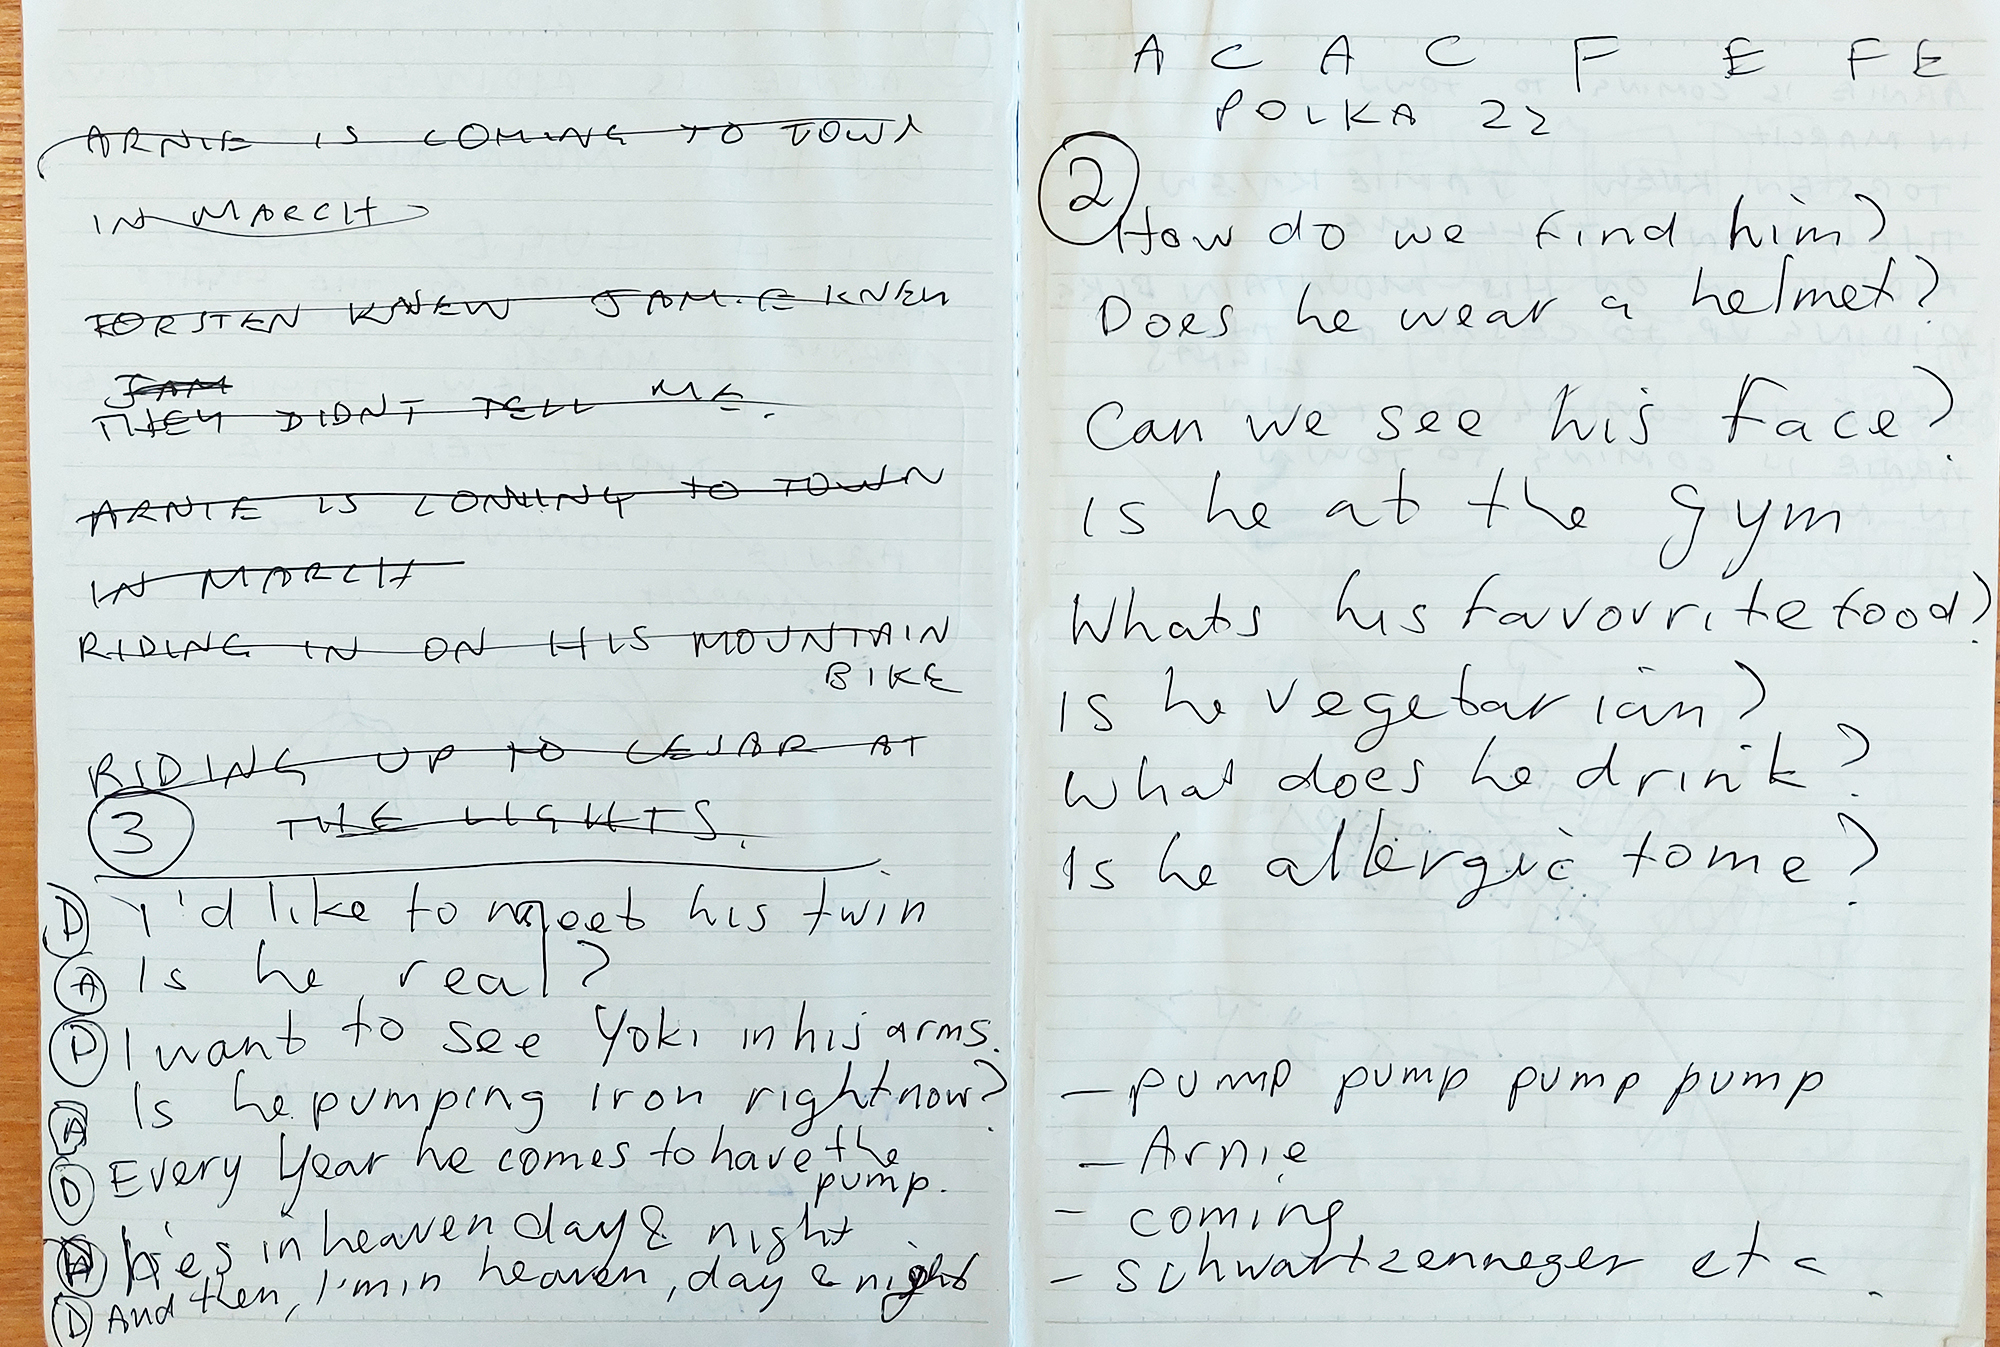 ARNIE IS COMING TO TOWN
IN MARCH
TORSTEN KNEW JAMIE KNEW
JAM
THEY DIDNT TELL ME.
ARNIE IS COMING TO TOWN
IN MARCH
RIDING IN ON HIS MOUNTAIN
BIKE
RIDING UP TO AT
THE LIGHTS.
3
D I'd like to meet his twin
A Is he real?
D I want to see Yoki in his arms.
A Is he pumping iron right now?
D Every Year he comes to have the
pump.
A he's in heaven day & night
D And then, I'm in heaven, day & night
A C A C F E F E
POLKA 22
2
How do we find him?
Does he wear a helmet?
Can we see his face?
Is he at the gym
Whats his favourite food?
Is he vegetarian?
What does he drink?
Is he allergic to me?
- pump pump pump pump
- Arnie
- coming
- schwartzenneger etc.